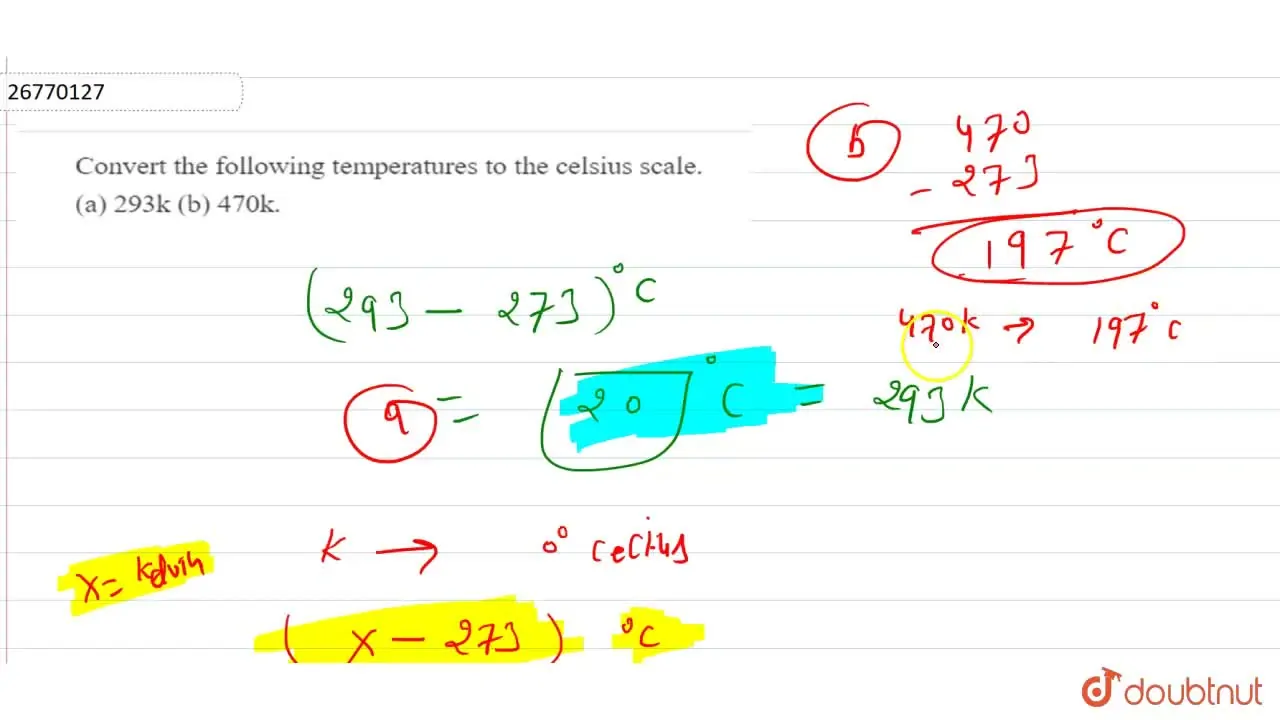 26770127
Convert the following temperatures to the celsius scale.
(a) 293k (b) 470k.
(293 - 273)°C
a = 20 °C = 293 K
K → 0° celcius
X = Kelvin
(X - 273) °C
b 470
- 273
197°C
470k → 197°C
doubtnut